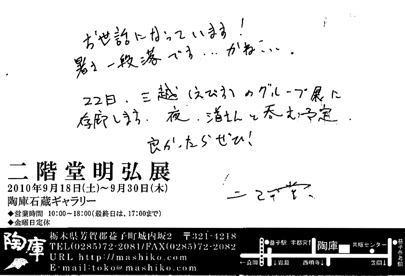 お世話になっています!
暑さ一段落です…かね…
22日、三越(えびす)のグループ展に
在廊します。夜、道さんと呑む予定。
良かったらぜひ!
二階堂
二階堂明弘展
2010年9月18日(土)〜9月30日(木)
陶庫石蔵ギャラリー
◆営業時間 10:00〜18:00(最終日は、17:00まで)
◆金曜日定休
陶庫
栃木県芳賀郡益子町城内坂2 〒321-4218
TEL(0285)72-2081/FAX(0285)72-2082
URL http://mashiko.com
E-mail:toko@mashiko.com
陶庫